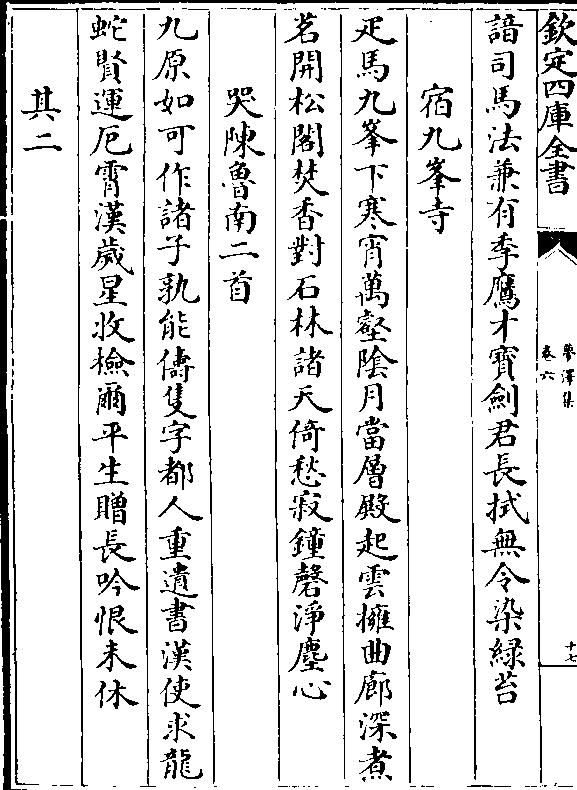 欽定四庫全書
夢澤集
卷六
十七
諳司馬法兼有季鷹才寶劍君長拭無令染緑苔
宿九峯寺
疋馬九峯下寒宵萬壑隂月當層殿起雲擁曲廊深煮
茗開松閣焚香對石林諸天倚愁寂鐘磬淨塵心
哭陳魯南二首
九原如可作諸子孰能儔隻字都人重遺書漢使求龍
蛇賢運厄霄漢嵗星收檢爾平生贈長吟恨未休
其二